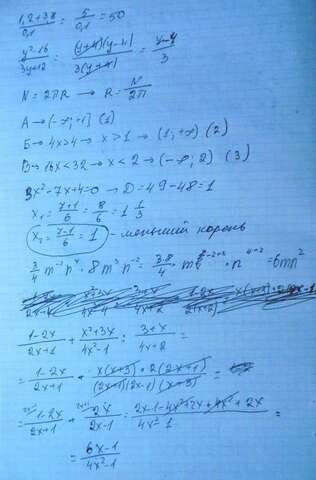 1,2+3,8/0,1 = 5/0,1 = 50
y²-16/3y+12 = (y+4)(y-4)/3(y+4) = y-4/3
N = 2πR → R = N/2π
А → (-∞; -1] (1)
Б → 4x>4 → x>1 → (1; +∞) (2)
В → 16x<32 → x<2 → (-∞; 2) (3)
3x²-7x+4=0 → D=49-48=1
x₁ = 7+1/6 = 8/6 = 1 1/3
x₂ = 7-1/6 = 1 - меньший корень
3/4 m⁻¹ n⁴ · 8m³ n⁻² = 3·8/4 · m · n⁴⁻² = 6mn²
1-2x/2x+1 + x²+3x/4x²-1 : 3+x/4x+2 =
= 1-2x/2x+1 + x(x+3)·2(2x+1)/(2x+1)(2x-1)(x+3) =
= 1-2x/2x+1 + 2x/2x-1 = 2x-1-4x²+2x+4x²+2x/4x²-1 =
= 6x-1/4x²-1